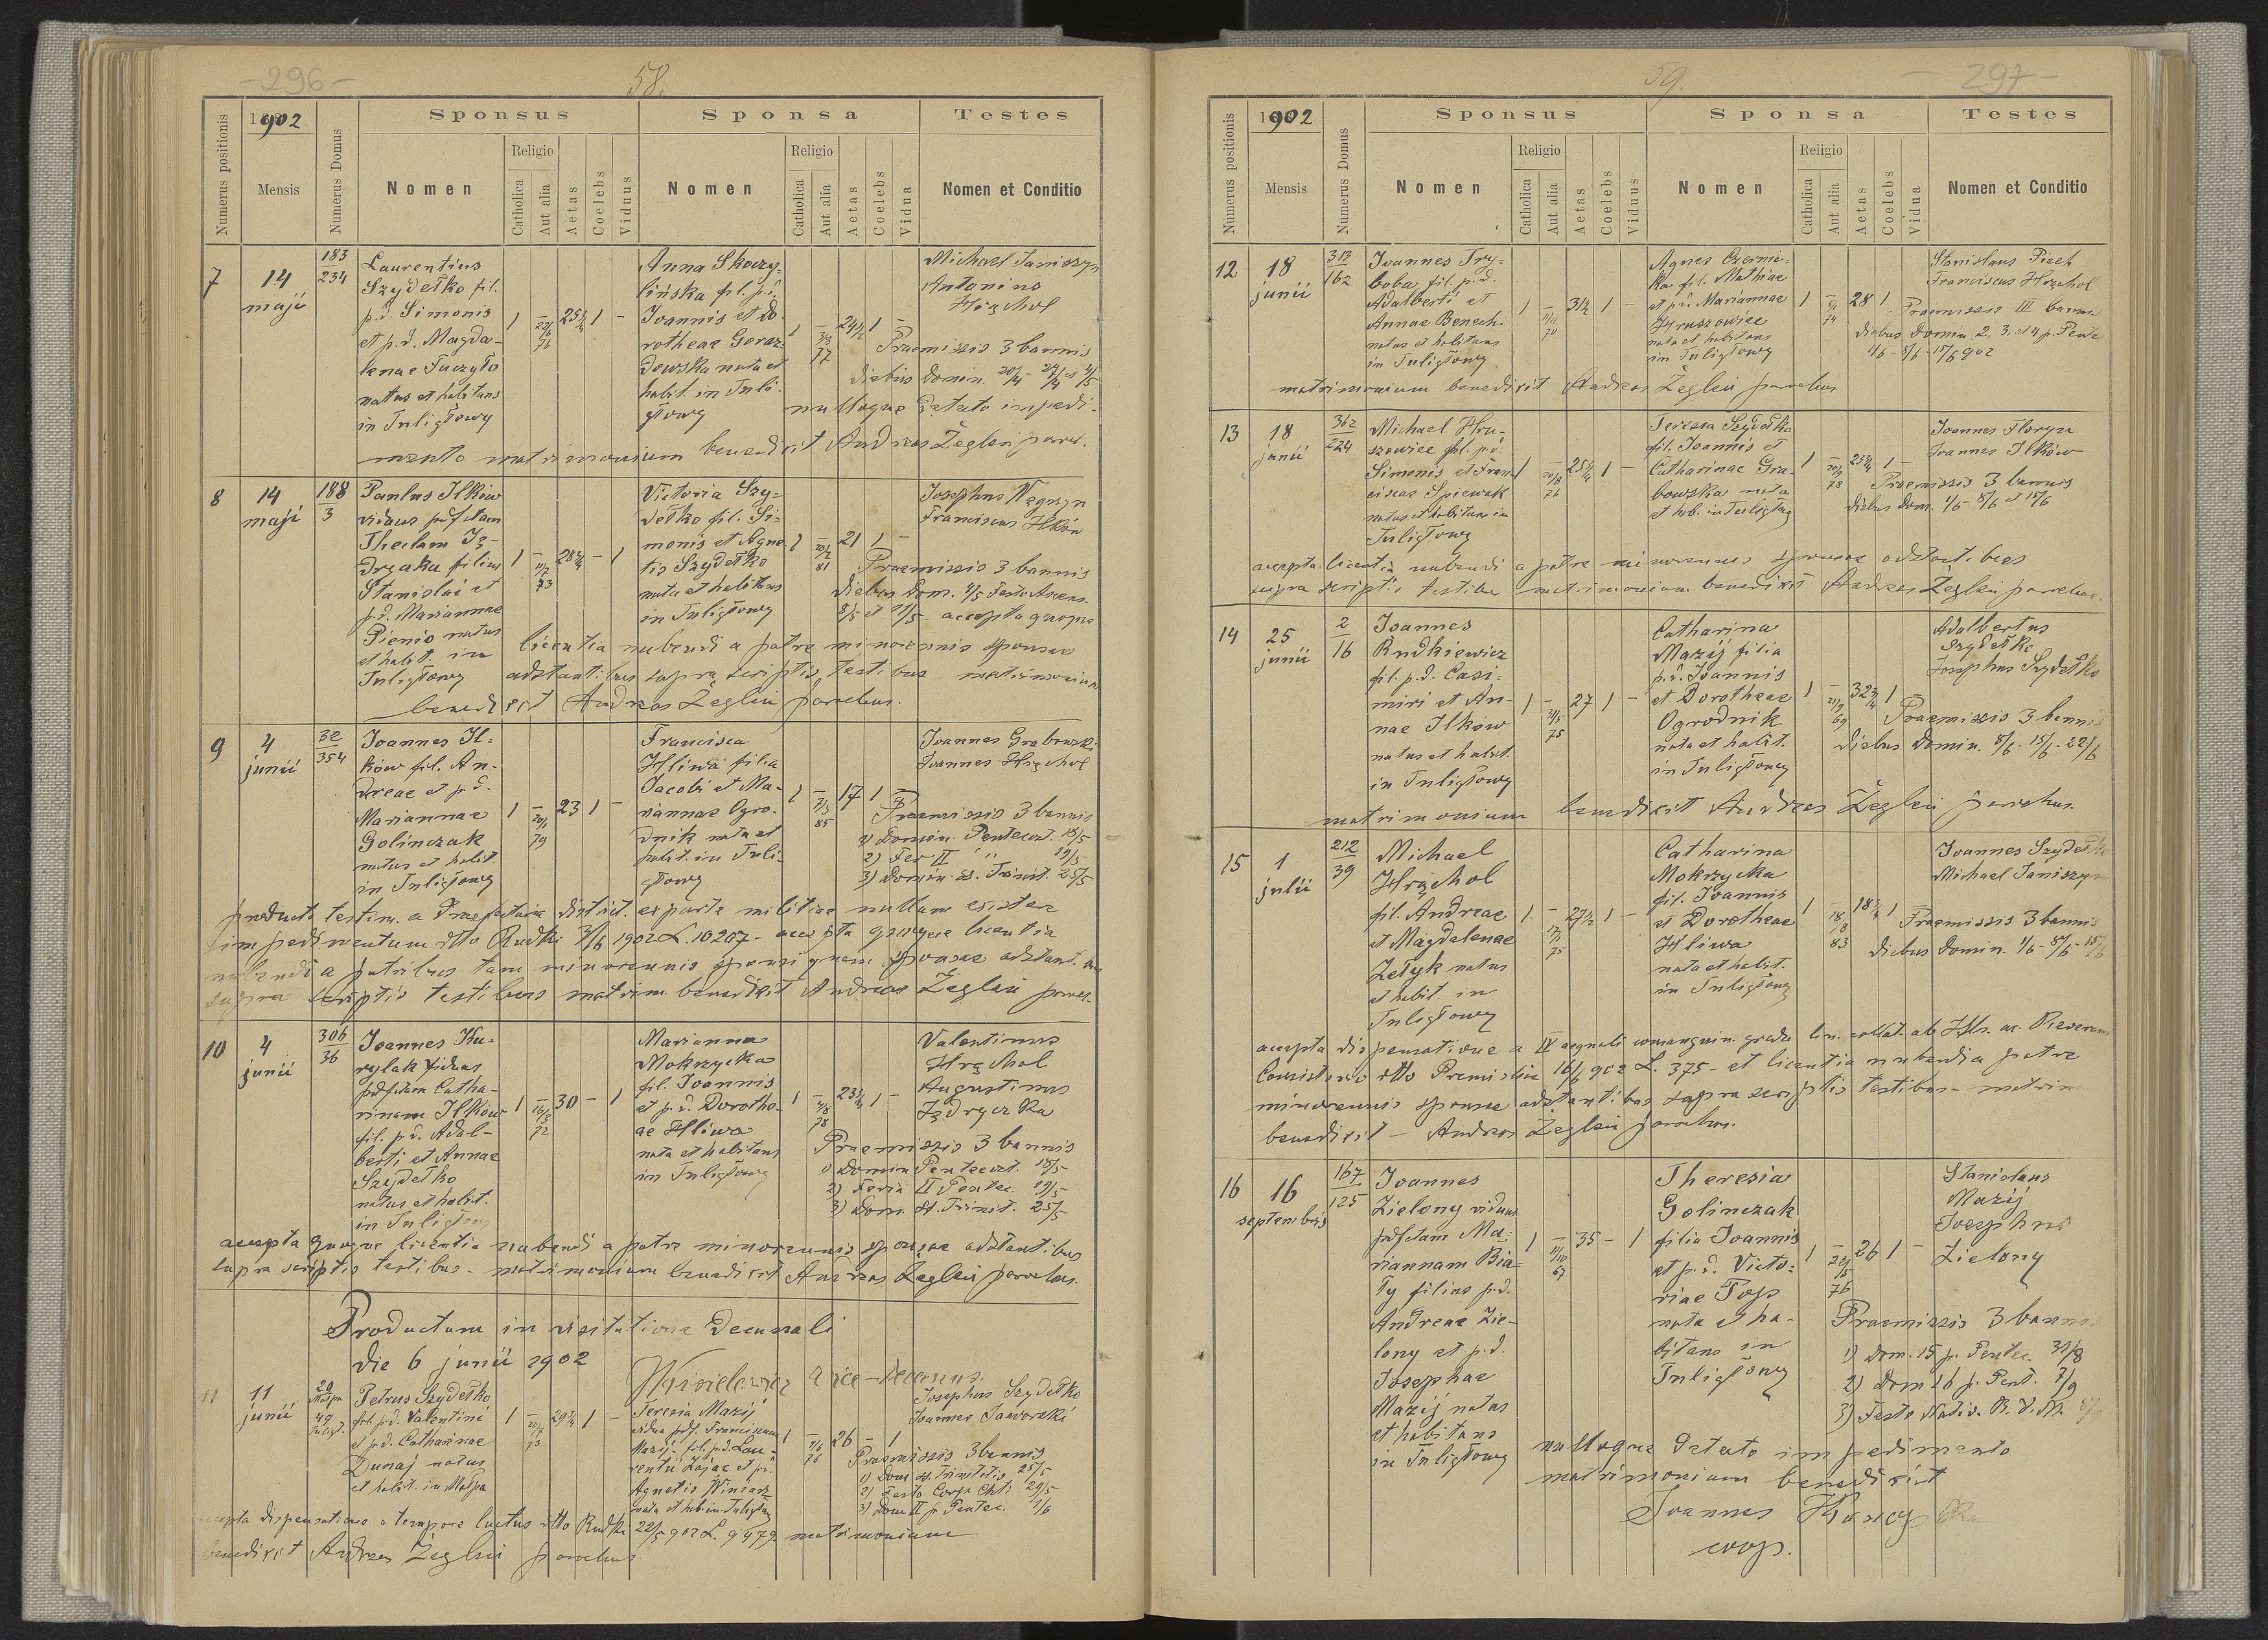 -296-
58.
Numerus positionis
1902
Mensis
Numerus Domus
Sponsus
Sponsa
Testes
Nomen
Religio
Catholica
Aut alia
Aetas
Coelebs
Viduus
Nomen
Religio
Catholica
Aut alia
Aetas
Coelebs
Vidua
Nomen et Conditio
7
14
maji
183
234
Laurentius
Szydełko fil.
p.d. Simonis
et p.d. Magda-
lenae Tuczyło
natus et habitans
in Tuligłowy
1 - 25 1 -
Anna Skoczy-
lińska fil. p.d.
Joannis et Do-
rotheae Goraz
dowska nata et
habit. in Tuli-
głowy
1 - 24½ 1 -
77
Michael Janiszyn
Antonius
Hrzchol
Praemissis 3 bannis
diebus Domin. 20/4 - 27/4 et 4/5
nulloque detecto impedi-
mento matrimonium benedixit Andreas Żegleń paroch.
8
14
maji
188
3
Paulus Ilków
viduus post def. tam
Theclam Ję-
drzaku filius
Stanislai et
p.d. Mariannae
Pienio natus
et habit. in
Tuligłowy
1 - 28¾ - 1
73
Victoria Szy-
dełko fil. Si-
monis et Agne-
tis Szydełko
nata et habitans
in Tuligłowy
1 - 21 1 -
81
Josephus Węgrzyn
Franciscus Ilków
Praemissis 3 bannis
diebus Dom. 4/5 Festo Ascens.
8/5 et 11/5 - accepta quoque
licentia nubendi a patre minorennis sponsae
adstantibus supra scriptis testibus matrimonium
benedixit Andreas Żegleń parochus.
9
4
junii
32
354
Joannes Il-
ków fil. An-
dreae et p.d.
Mariannae
Golinczak
natus et habit.
in Tuligłowy
1 - 23 1 -
79
Francisca
Hliwa filia
Jacobi et Ma-
riannae Ogro-
dnik nata et
habit. in Tuli-
głowy
1 - 17 1 -
85
Joannes Grabowski
Joannes Hrzchol
Praemissis 3 bannis
1) Domin. Pentecost. 18/5
2) Fer II " 19/5
3) Domin. S. Trinit. 25/5
producto testim. a Praefectura district. ex parte militiae nullam existere
impedimentum dtto Rudki 3/6 1902 L. 10207 - accepta quoque licentia
nubendi a patribus tam minorennis sponsi quam sponsae adstant.
supra scriptis testibus matrim. benedixit Andreas Żegleń paroch.
10
4
junii
306
36
Joannes Ku-
rylak viduus
post def. tam Catha-
rinam Ilków
fil. p.d. Adal-
berti et Annae
Szydełko
natus et habit.
in Tuligłowy
1 - 30 - 1
72
Marianna
Mokrzycka
fil. Joannis
et p.d. Dorothe-
ae Hliwa
nata et habitans
in Tuligłowy
1 - 23¾ 1 -
78
Valentinus
Hrzchol
Augustinus
Jędryczka
Praemissis 3 bannis
1) Domin Pentecost. 18/5
2) Feria II Pentec. 19/5
3) Dom. S. Trinit. 25/5
accepta quoque licentia nubendi a patre minorennis sponsae adstantibus
supra scriptis testibus - matrimonium benedixit Andreas Żegleń parochus.
Productum in visitatione Decanali
die 6 junii 1902
vice-decanus.
11
11
junii
49
Petrus Szydełko
fil. p.d. Valentini
et p.d. Catharinae
Dunaj natus
et habit. in Małpa
1 - 29¾ 1 -
73
Teresia Mazij
vidua post def. Franciscum
Mazij - fil. p.d. Lau-
rentii Zając et p.d.
Agnetis Winiarz
nata et hab. in Tuligłowy
1 - 26 - 1
76
Josephus Szydełko
Joannes Jaworski
Praemissis 3 bannis
1) Dom S. Trinitatis 25/5
2) Festo Corp. Chti 29/5
3) Dom II p. Pentec. 1/6
accepta dispensatione a tempore luctus dtto Rudki 22/5 902 L. 9479 matrimonium
benedixit Andreas Żegleń parochus
59.
-297-
Numerus positionis
1902
Mensis
Numerus Domus
Sponsus
Sponsa
Testes
Nomen
Religio
Catholica
Aut alia
Aetas
Coelebs
Viduus
Nomen
Religio
Catholica
Aut alia
Aetas
Coelebs
Vidua
Nomen et Conditio
12
18
junii
313
162
Joannes Try-
boba fil. p.d.
Adalberti et
Annae Benech
natus et habitans
in Tuligłowy
1 - 31½ 1 -
70
Agnes Czerni-
ka fil. Mathiae
et p.d. Mariannae
Hruszowiec
nata et habitans
in Tuligłowy
1 - 28 1
74
Stanislaus Piech
Franciscus Hrzchol
Praemissis III bannis
diebus Domin. 2. 3. et 4 p. Pente
1/6 - 8/6 - 15/6 902
matrimonium benedixit Andreas Żegleń parochus.
13
18
junii
362
224
Michael Hru-
szowiec fil. p.d.
Simonis et Fran-
ciscae Spiewak
natus et habitans in
Tuligłowy
1 - 25¾ 1 -
76
Teresia Szydełko
fil. Joannis et
Catharinae Gra-
bowska nata
et hab. in Tuligłowy
1 - 23¾ 1 -
78
Joannes Floryn
Joannes Ilków
Praemissis 3 bannis
diebus Dom. 1/6 - 8/6 et 15/6
accepta licentia nubendi a patre minorennis sponsae adstantibus
supra scriptis testibus matrimonium benedixit Andreas Żegleń parochus.
14
25
junii
2
16
Joannes
Rudkiewicz
fil. p.d. Casi-
miri et An-
nae Ilków
natus et habit.
in Tuligłowy
1 - 27 1 -
75
Catharina
Mazij filia
p.d. Joannis
et Dorotheae
Ogrodnik
nata et habit.
in Tuligłowy
1 - 32¾ 1
69
Adalbertus
Szydełko
Josephus Szydełko
Praemissis 3 bannis
diebus Domin. 8/6 - 15/6 - 22/6
matrimonium benedixit Andreas Żegleń parochus.
15
1
julii
212
39
Michael
Hrzchol
fil. Andreae
et Magdalenae
Zetyk natus
et habit. in
Tuligłowy
1 - 27½ 1 -
75
Catharina
Mokrzycka
fil. Joannis
et Dorotheae
Hliwa
nata et habit.
in Tuligłowy
1 - 18¾ 1
18/8
83
Joannes Szydełko
Michael Janiszyn
Praemissis 3 bannis
diebus Domin. 1/6 - 8/6 - 15/6
accepta dispensatione a IV aequali consanguin. gradu collat. ab Ills. ac Reverend
Consistorio dtto Premisliae 16/6 902 L. 375 - et licentia nubendi a patre
minorennis sponsae adstantibus supra scriptis testibus - matrim
benedixit - Andreas Żegleń parochus.
16
16
septembris
167
125
Joannes
Zielony viduus
post def. tam Ma-
riannam Bia-
ły filius p.d.
Andreae Zie-
lony et p.d.
Josephae
Mazij natus
et habitans
in Tuligłowy
1 - 35 - 1
67
Theresia
Golinczak
filia Joannis
et p.d. Victo-
riae Pop
nata et ha-
bitans in
Tuligłowy
1 - 26 1 -
76
Stanislaus
Mazij
Josephus
Zielony
Praemissis 3 bannis
1) Dom. 15 p. Pentec. 31/8
2) Dom 16 p. Pent. 7/9
3) Festo Nativ. B. V. M. 8/9
nulloque detecto impedimento
matrimonium benedixit
Joannes
coop.